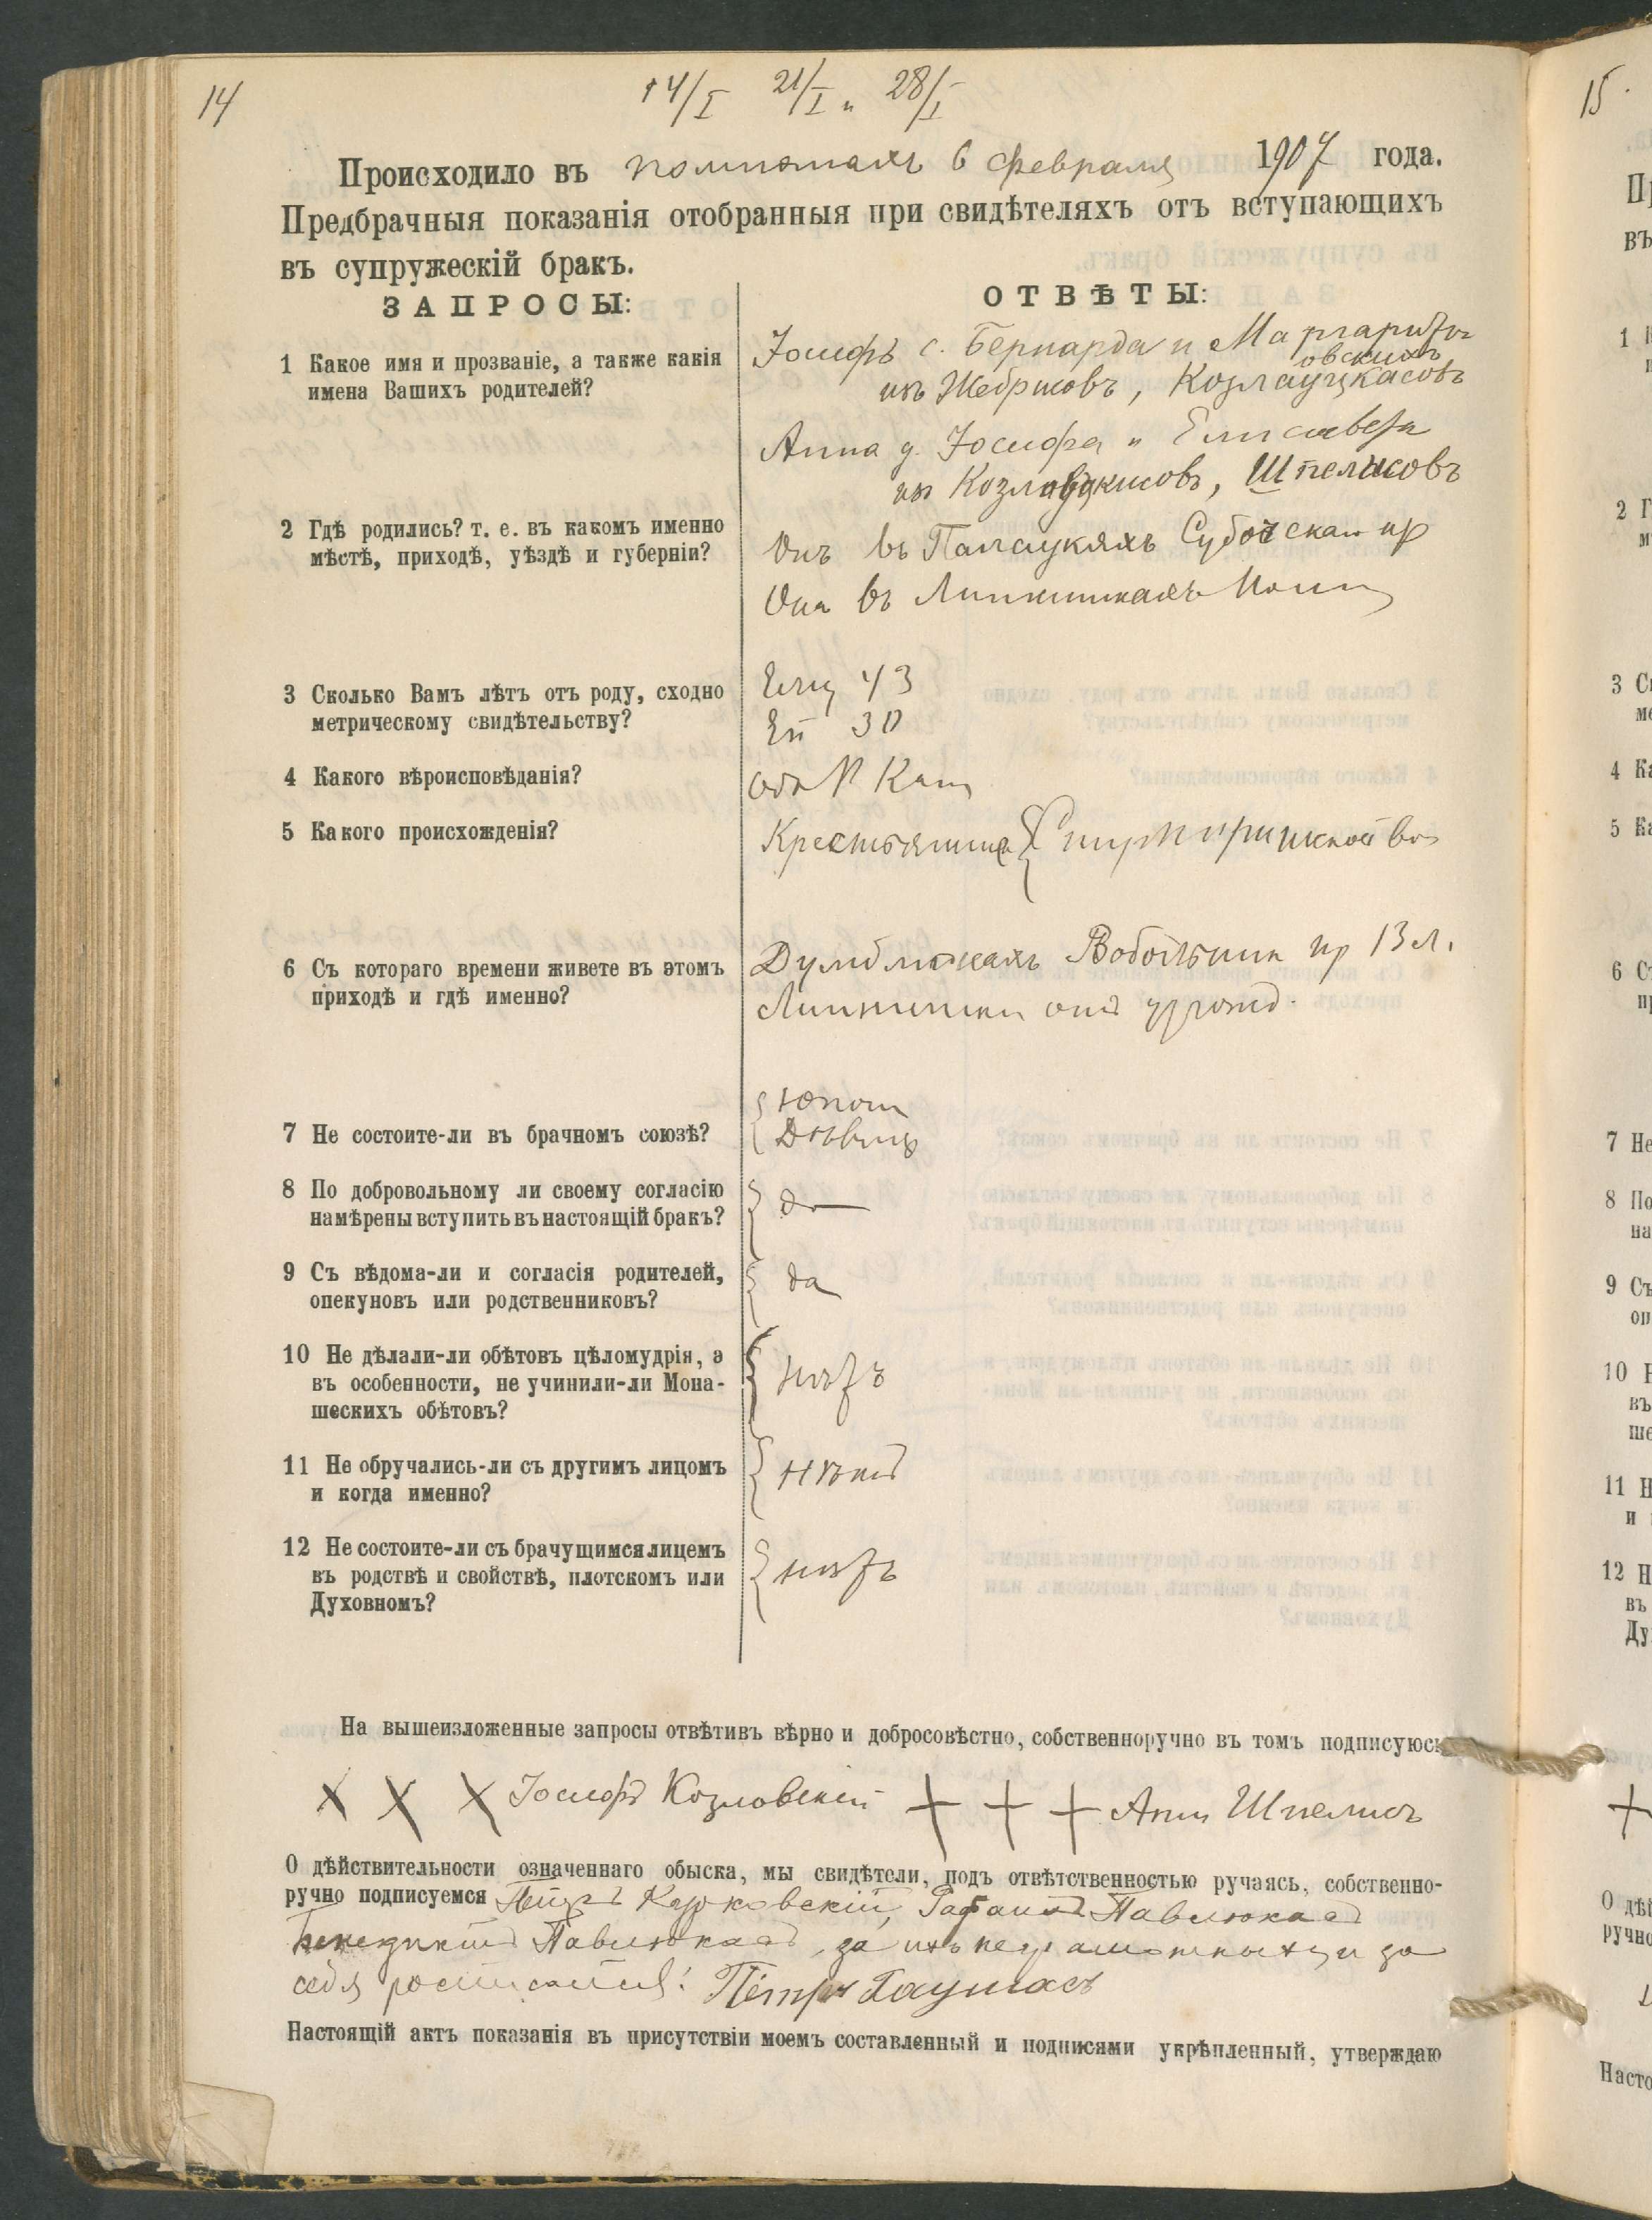 14
14/I 21/I и 28/I
Происходило въ 6 февраля 1907 года.
Предбрачныя показанія отобранныя при свидѣтеляхъ отъ вступающихъ
въ супружескій бракъ.
ЗАПРОСЫ:
ОТВѢТЫ:
1 Какое имя и прозваніе, а также какія
имена Вашихъ родителей?
Іосифъ с. Бернарда и Маргариты
овскихъ
изъ Жебрисовъ, Козлауцкасовъ
Анна д. Іосифа и Елисаветы
изъ Шпелисовъ
2 Гдѣ родились? т. е. въ какомъ именно
мѣстѣ, приходѣ, уѣздѣ и губерніи?
Онъ въ Субочскаго пр
Она въ
3 Сколько Вамъ лѣтъ отъ роду, сходно
метрическому свидѣтельству?
Ему 43
Ей 30
4 Какого вѣроисповѣданія?
оба Р Кат
5 Какого происхожденія?
Крестьяне
6 Съ котораго времени живете въ этомъ
приходѣ и гдѣ именно?
пр 13 л.
она
7 Не состоите-ли въ брачномъ союзѣ?
Юнош
Дѣвица
8 По добровольному ли своему согласію
намѣрены вступить въ настоящій бракъ?
да
9 Съ вѣдома-ли и согласія родителей,
опекуновъ или родственниковъ?
да
10 Не дѣлали-ли обѣтовъ цѣломудрія, а
въ особенности, не учинили-ли Мона-
шескихъ обѣтовъ?
нѣтъ
11 Не обручались-ли съ другимъ лицомъ
и когда именно?
нѣтъ
12 Не состоите-ли съ брачущимся лицемъ
въ родствѣ и свойствѣ, плотскомъ или
Духовномъ?
нѣтъ
На вышеизложенные запросы отвѣтивъ вѣрно и добросовѣстно, собственноручно въ томъ подписуюсь
X X X Іосифъ Козловскій + + + Анна Шпелисъ
О дѣйствительности означеннаго обыска, мы свидѣтели, подъ отвѣтственностью ручаясь, собственно-
ручно подписуемся Павлюкасъ
Бенедиктъ Павлюкасъ, за ихъ неграмотныхъ и за
себя росписался: Петръ
Настоящій актъ показанія въ присутствіи моемъ составленный и подписями укрѣпленный, утверждаю
15